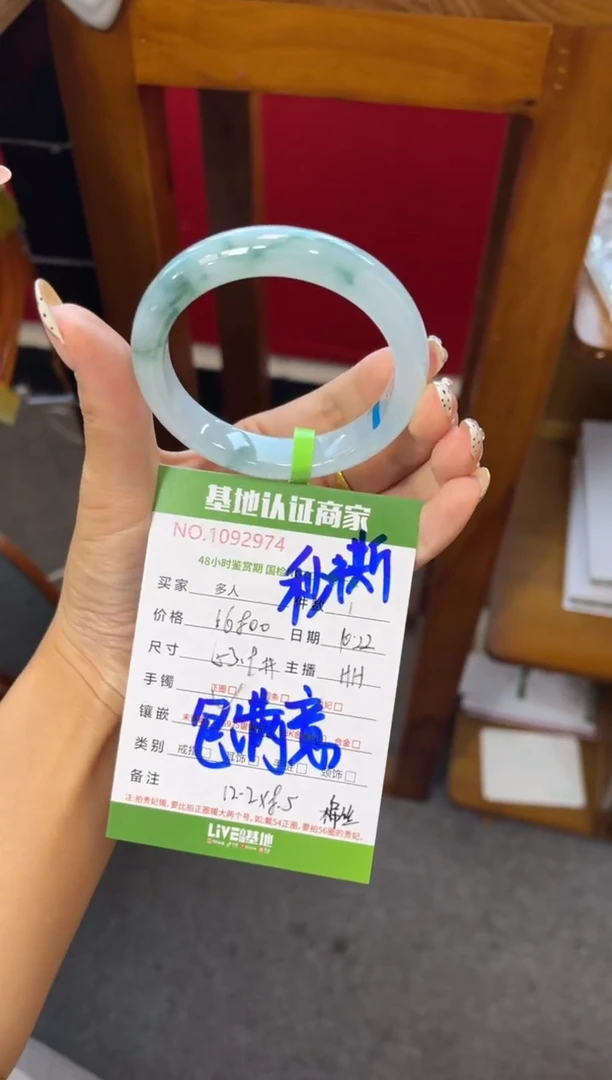 基地认证商家
NO.1092974
48小时鉴赏期 国检
秒撕
买家 多人 件数 1
价格 16800 日期 10.22
尺寸 主播 HH
手镯 正圈□ □
镶嵌 合金□
包满意
类别 戒指□ □ □ 颈饰□
备注 12-2×8.5 棉丝
注:拍贵妃镯,要比拍正圈镯大两个号。如:戴54正圈,要拍56圈的贵妃。
LiVE 基地